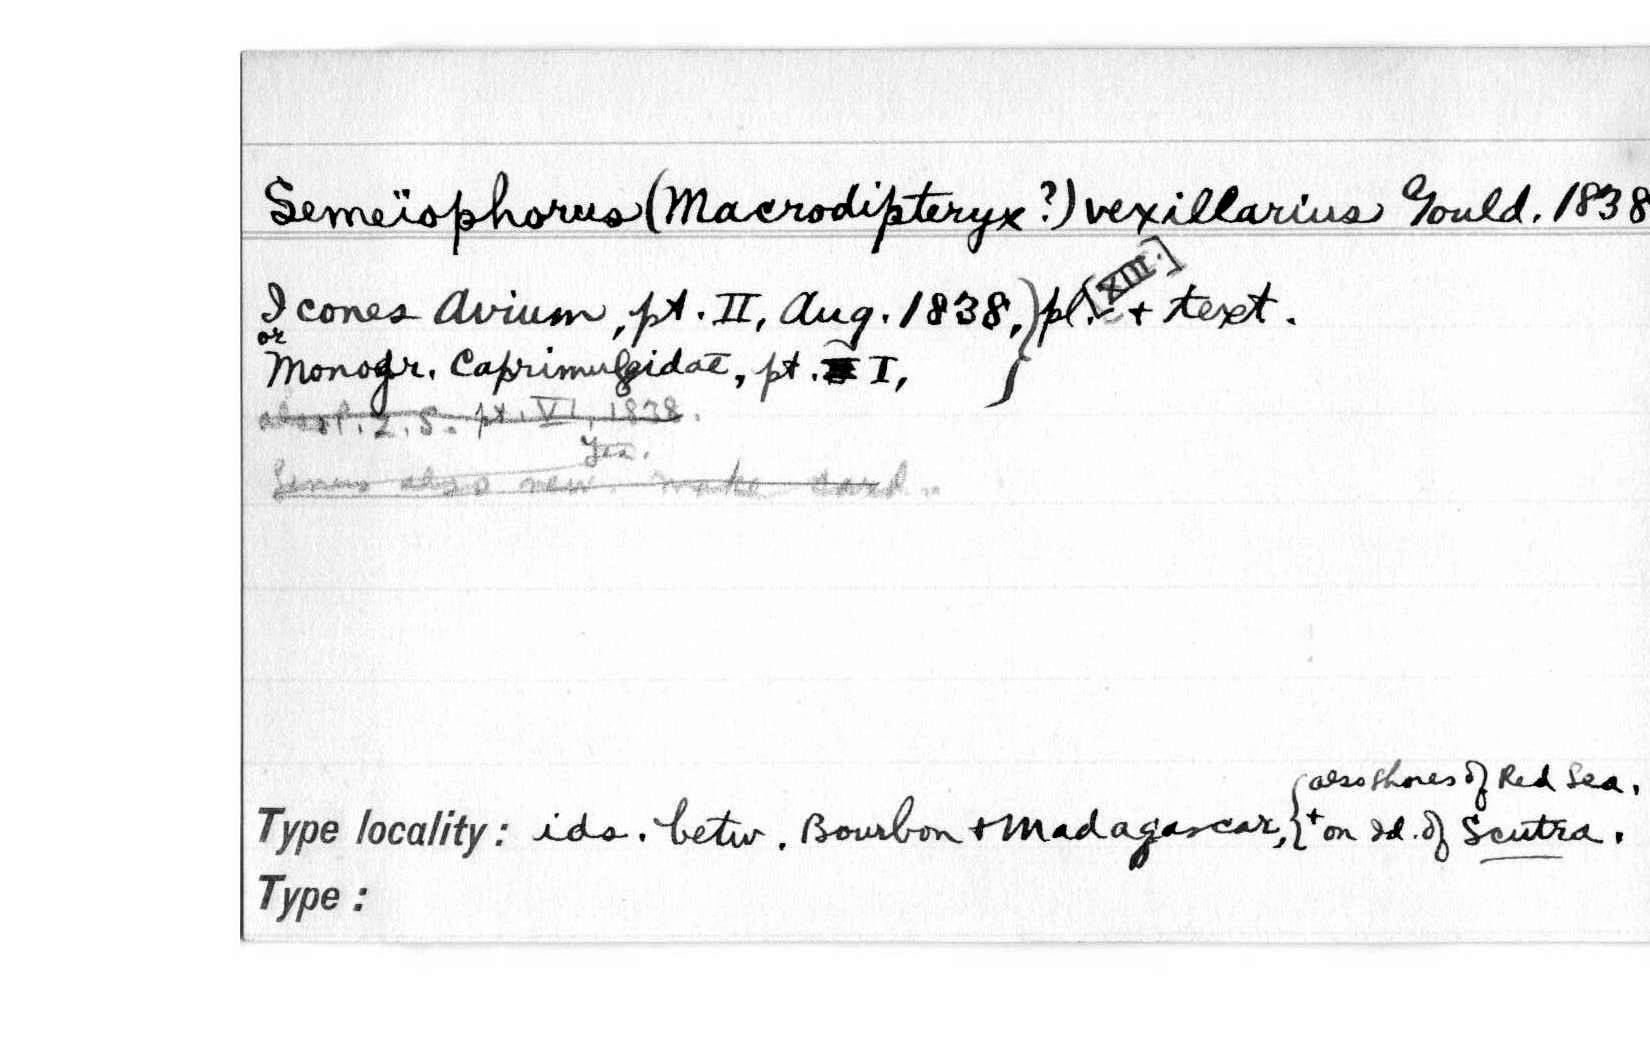 Semeïophorus (Macrodipteryx?) vexillarius Gould. 1838
Icones Avium, pt. II, Aug. 1838, } pl. [XIII.] + text.
or
Monogr. Caprimulgidae, pt. I,
pt. VI, 1838.
Yes.
Genus also new. Make card.
also shores of Red Sea,
Type locality: ids. betw. Bourbon + Madagascar, { + on Id. of Scutra.
Type: